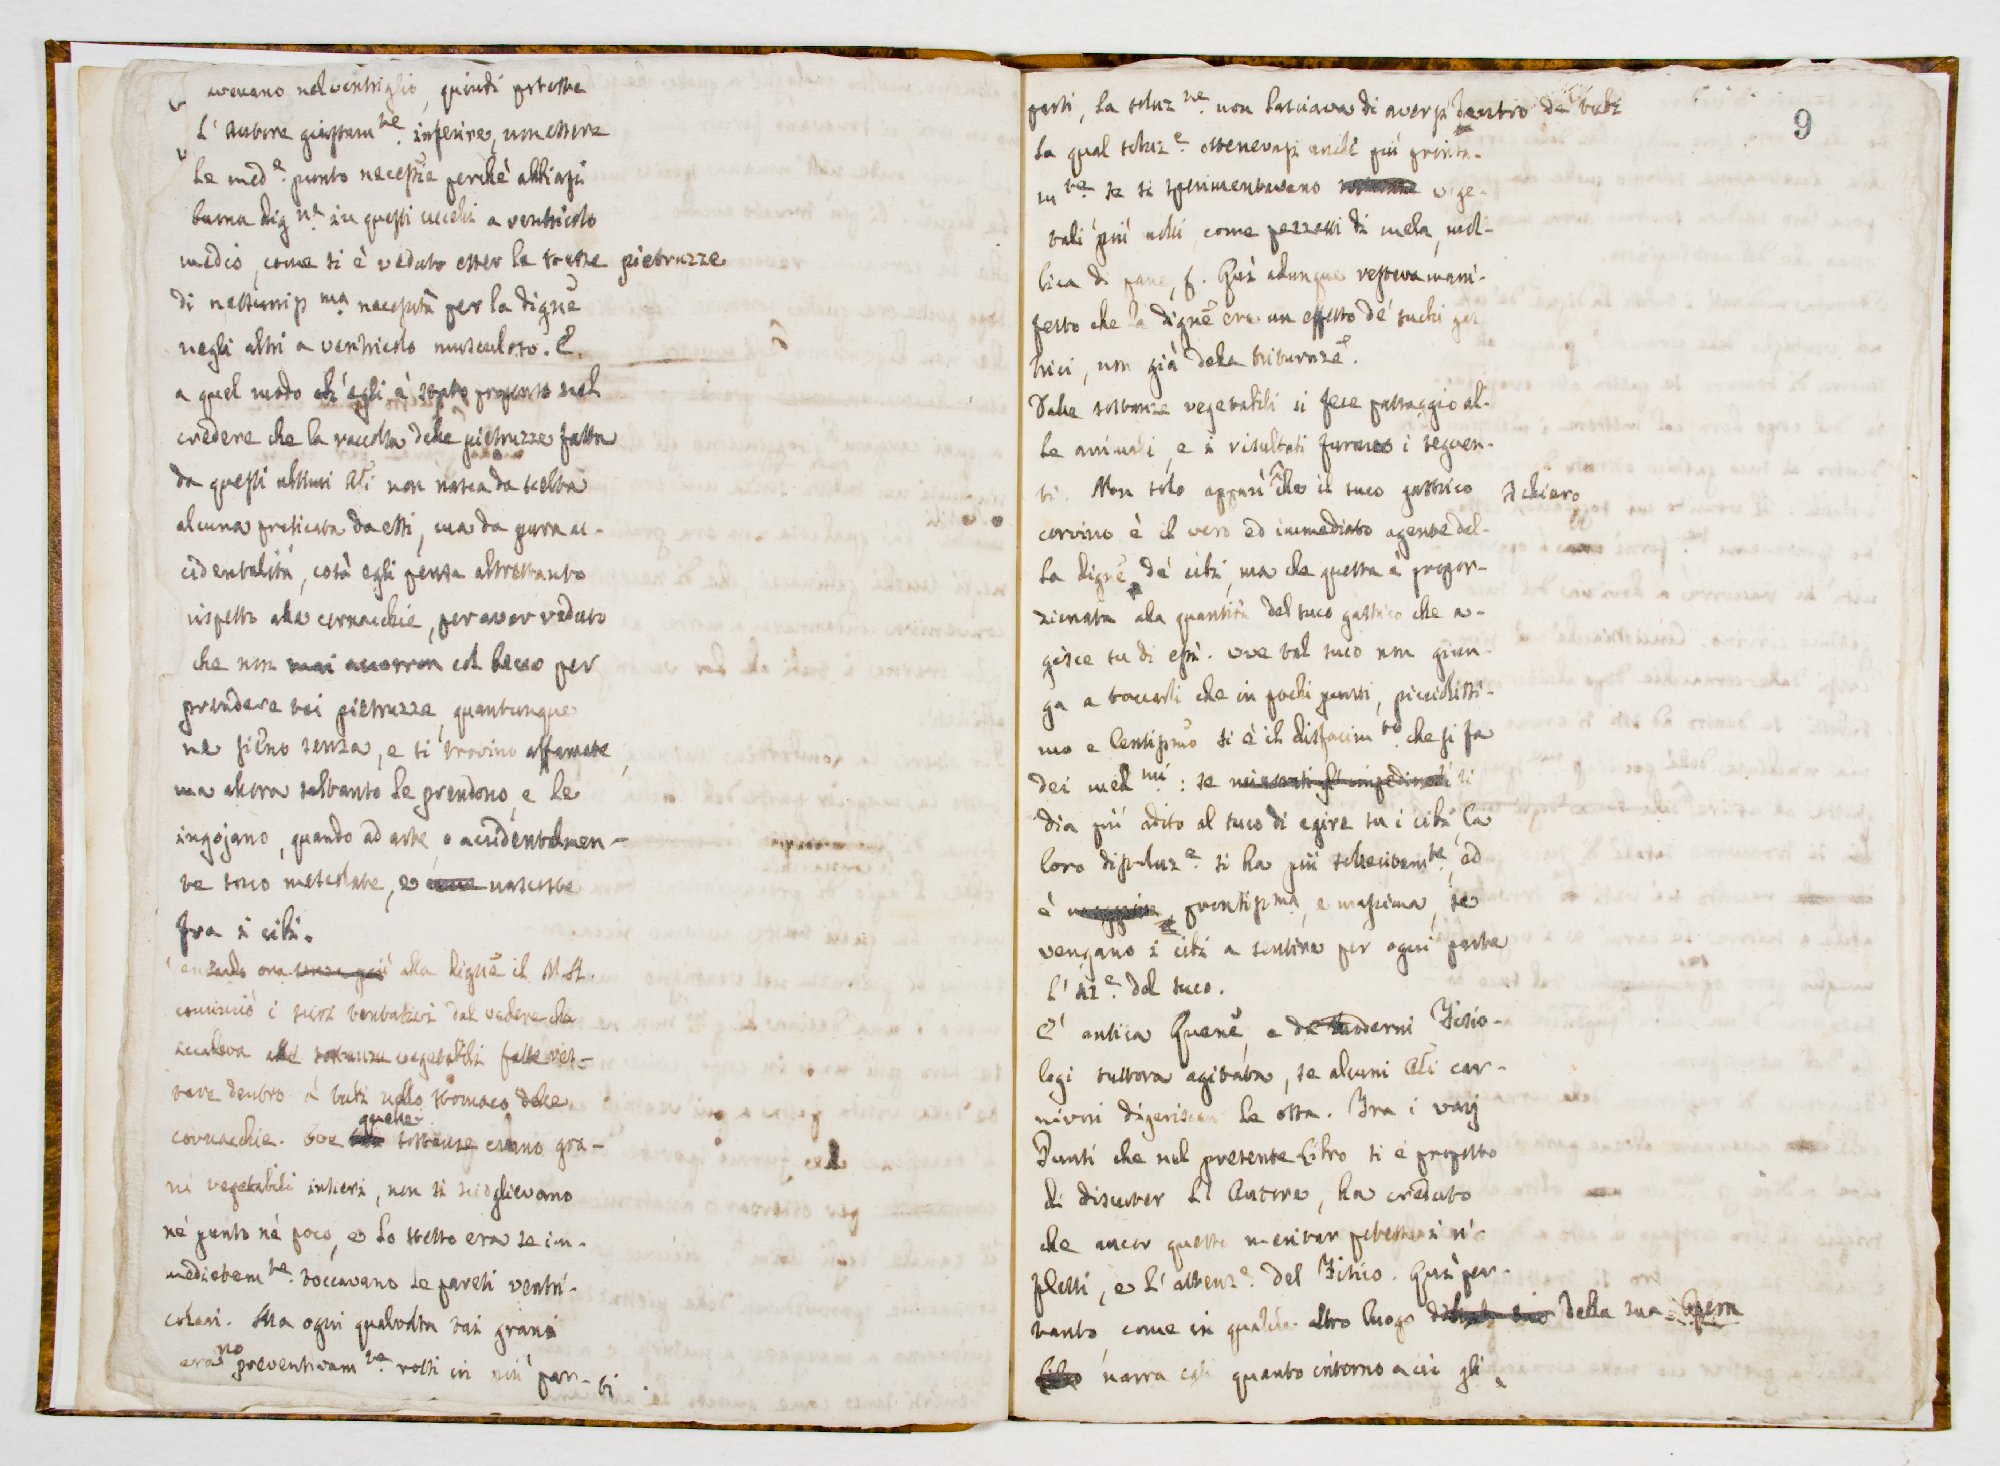 avevano nel ventriglio, quindi potette
L'Autore giustam.te inferire, non essere
le med.e punto necessie perchè abbiasi
buona dig.ne in questi uccelli a ventricolo
medio, come si è veduto esser le stesse pietruzze
di nessunissima necessità per la digne
negli altri a ventricolo muscoloso. E
a quel modo ch'egli è stato propenso nel
credere che la raccolta delle pietruzze fatta
da questi ultimi Ali non nasca da scelta
alcuna praticata da essi, ma da pura ac-
cidentalità, così egli pensa altrettanto
rispetto alle cornacchie, per aver veduto
che non mai accorron col becco per
prendere tai pietruzze, quantunque
ne sieno senza, e si trovino affamate,
ma allora soltanto le prendono, e le
ingojano, quando ad arte, o accidentalmen-
te sono mescolate, e nascoste
fra i cibi.
ora alla digne il N.A.
cominciò i suoi tentativi dal vedere che
accadeva alle sostanze vegetabili fatte res-
tare dentro a tubi nello stomaco delle
cornacchie. Ove quelle sostanze erano gra-
ni vegetabili intieri, non si scioglievano
nè punto nè poco, e lo stesso era se im-
mediatam.te toccavano le pareti ventri-
colari. Ma ogni qualvolta tai grani
erano preventivam.te rotti in più par-ti
9
parti, la soluz.ne non lasciava di aversi dentro de' tubi
la qual soluz.e ottenevasi anche più pronta-
m.te se si sperimentavano vege-
tali più molli, come pezzetti di mela, mol-
lica di pane, f. Quì adunque restava mani-
festo che la digne era un effetto de' suchi gas
trici, non già della triturazne.
Dalle sostanze vegetabili si fece passaggio al-
le animali, e i risultati furono i seguen-
ti. Non solo apparì che il suco gastrico
corvino è il vero ed immediato agente del-
la digne de' cibi, ma che questa è propor-
zionata alla quantità del suco gastrico che a-
gisce su di essi. ove tal suco non giun-
ga a toccarli che in pochi punti, piccolissi-
mo e lentissmo si è il disfacim.to che si fa
dei med.mi: se si
dia più adito al suco di agire su i cibi, la
loro dissoluz.e si ha più sollecitam.te, ed
è prontissma, e massima, se
vengano i cibi a sentire per ogni parte
l'az.e del suco.
E' antica Quene, e da' moderni Fisio-
logi tuttora agitata, se alcuni Ali car-
nivori digeriscan le ossa. Fra i varj
Punti che nel presente Libro si è proposto
di discuter l'Autore, ha creduto
che ancor questo meritar potesse i ri-
flessi, e l'attenz.e del Fisico. Quì per-
tanto come in qualche altro luogo della sua Opera
narra egli quanto intorno a ciò gli